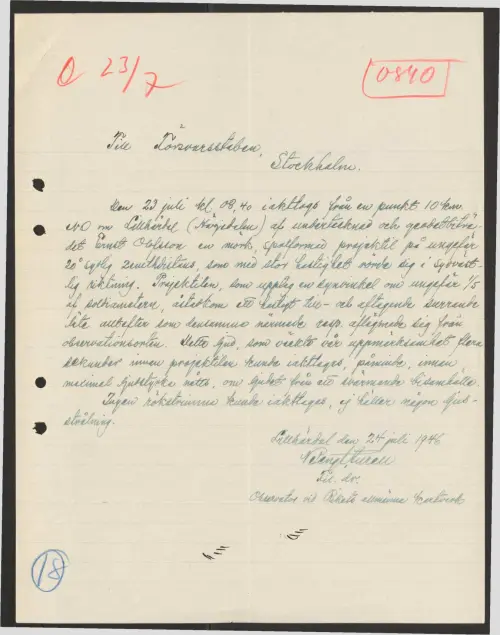 O 23/7
0840
Till Försvarsstaben,
Stockholm.
Den 23 juli kl 08.40 iakttogs från en punkt 10 km
NO om Lillhärdal (Härjedalen) af undertecknad och
det Ernst Olsson en mörk, spolformad projektil på ungefär
20° sydlig zenitdistans, som med stor hastighet rörde sig i sydväst-
lig riktning. Projektilen, som upptog en synvinkel om ungefär 1/5
af solkametern, åtföljdes af ett till- och aftagande surrande
läte allteftersom densamma närmade resp. aflägsnade sig från
observationsorten. Detta ljud, som väckte vår uppmärksamhet flera
sekunder innan projektilen kunde iakttagas, påminde, innan
maximal ljudstyrka nåtts, om ljudet från ett svermande bisamhälle.
Ingen rökstrimma kunde iakttagas, ej heller någon ljus-
strålning.
Lillhärdal den 24 juli 1946
Fil. dr.
Observator vid Rikets allmänna kartverk
18